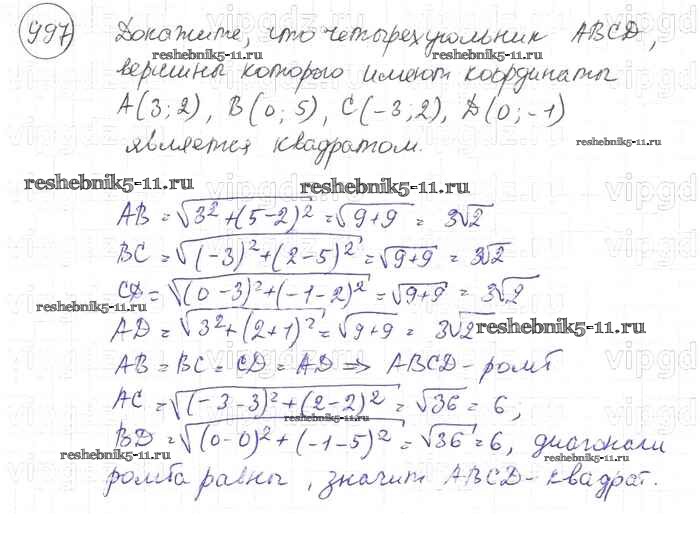 997) Докажите, что четырехугольник ABCD,
вершины которого имеют координаты
A(3; 2), B(0; 5), C(-3; 2), D(0; -1)
является квадратом.
AB = √(3² + (5-2)²) = √(9+9) = 3√2
BC = √((-3)² + (2-5)²) = √(9+9) = 3√2
CD = √((0-3)² + (-1-2)²) = √(9+9) = 3√2
AD = √(3² + (2+1)²) = √(9+9) = 3√2
AB = BC = CD = AD ⇒ ABCD - ромб
AC = √((-3-3)² + (2-2)²) = √36 = 6;
BD = √((0-0)² + (-1-5)²) = √36 = 6, диагонали
ромба равны, значит ABCD - квадрат.
reshebnik5-11.ru
reshebnik5-11.ru
reshebnik5-11.ru
reshebnik5-11.ru
reshebnik5-11.ru
reshebnik5-11.ru
reshebnik5-11.ru
reshebnik5-11.ru
reshebnik5-11.ru